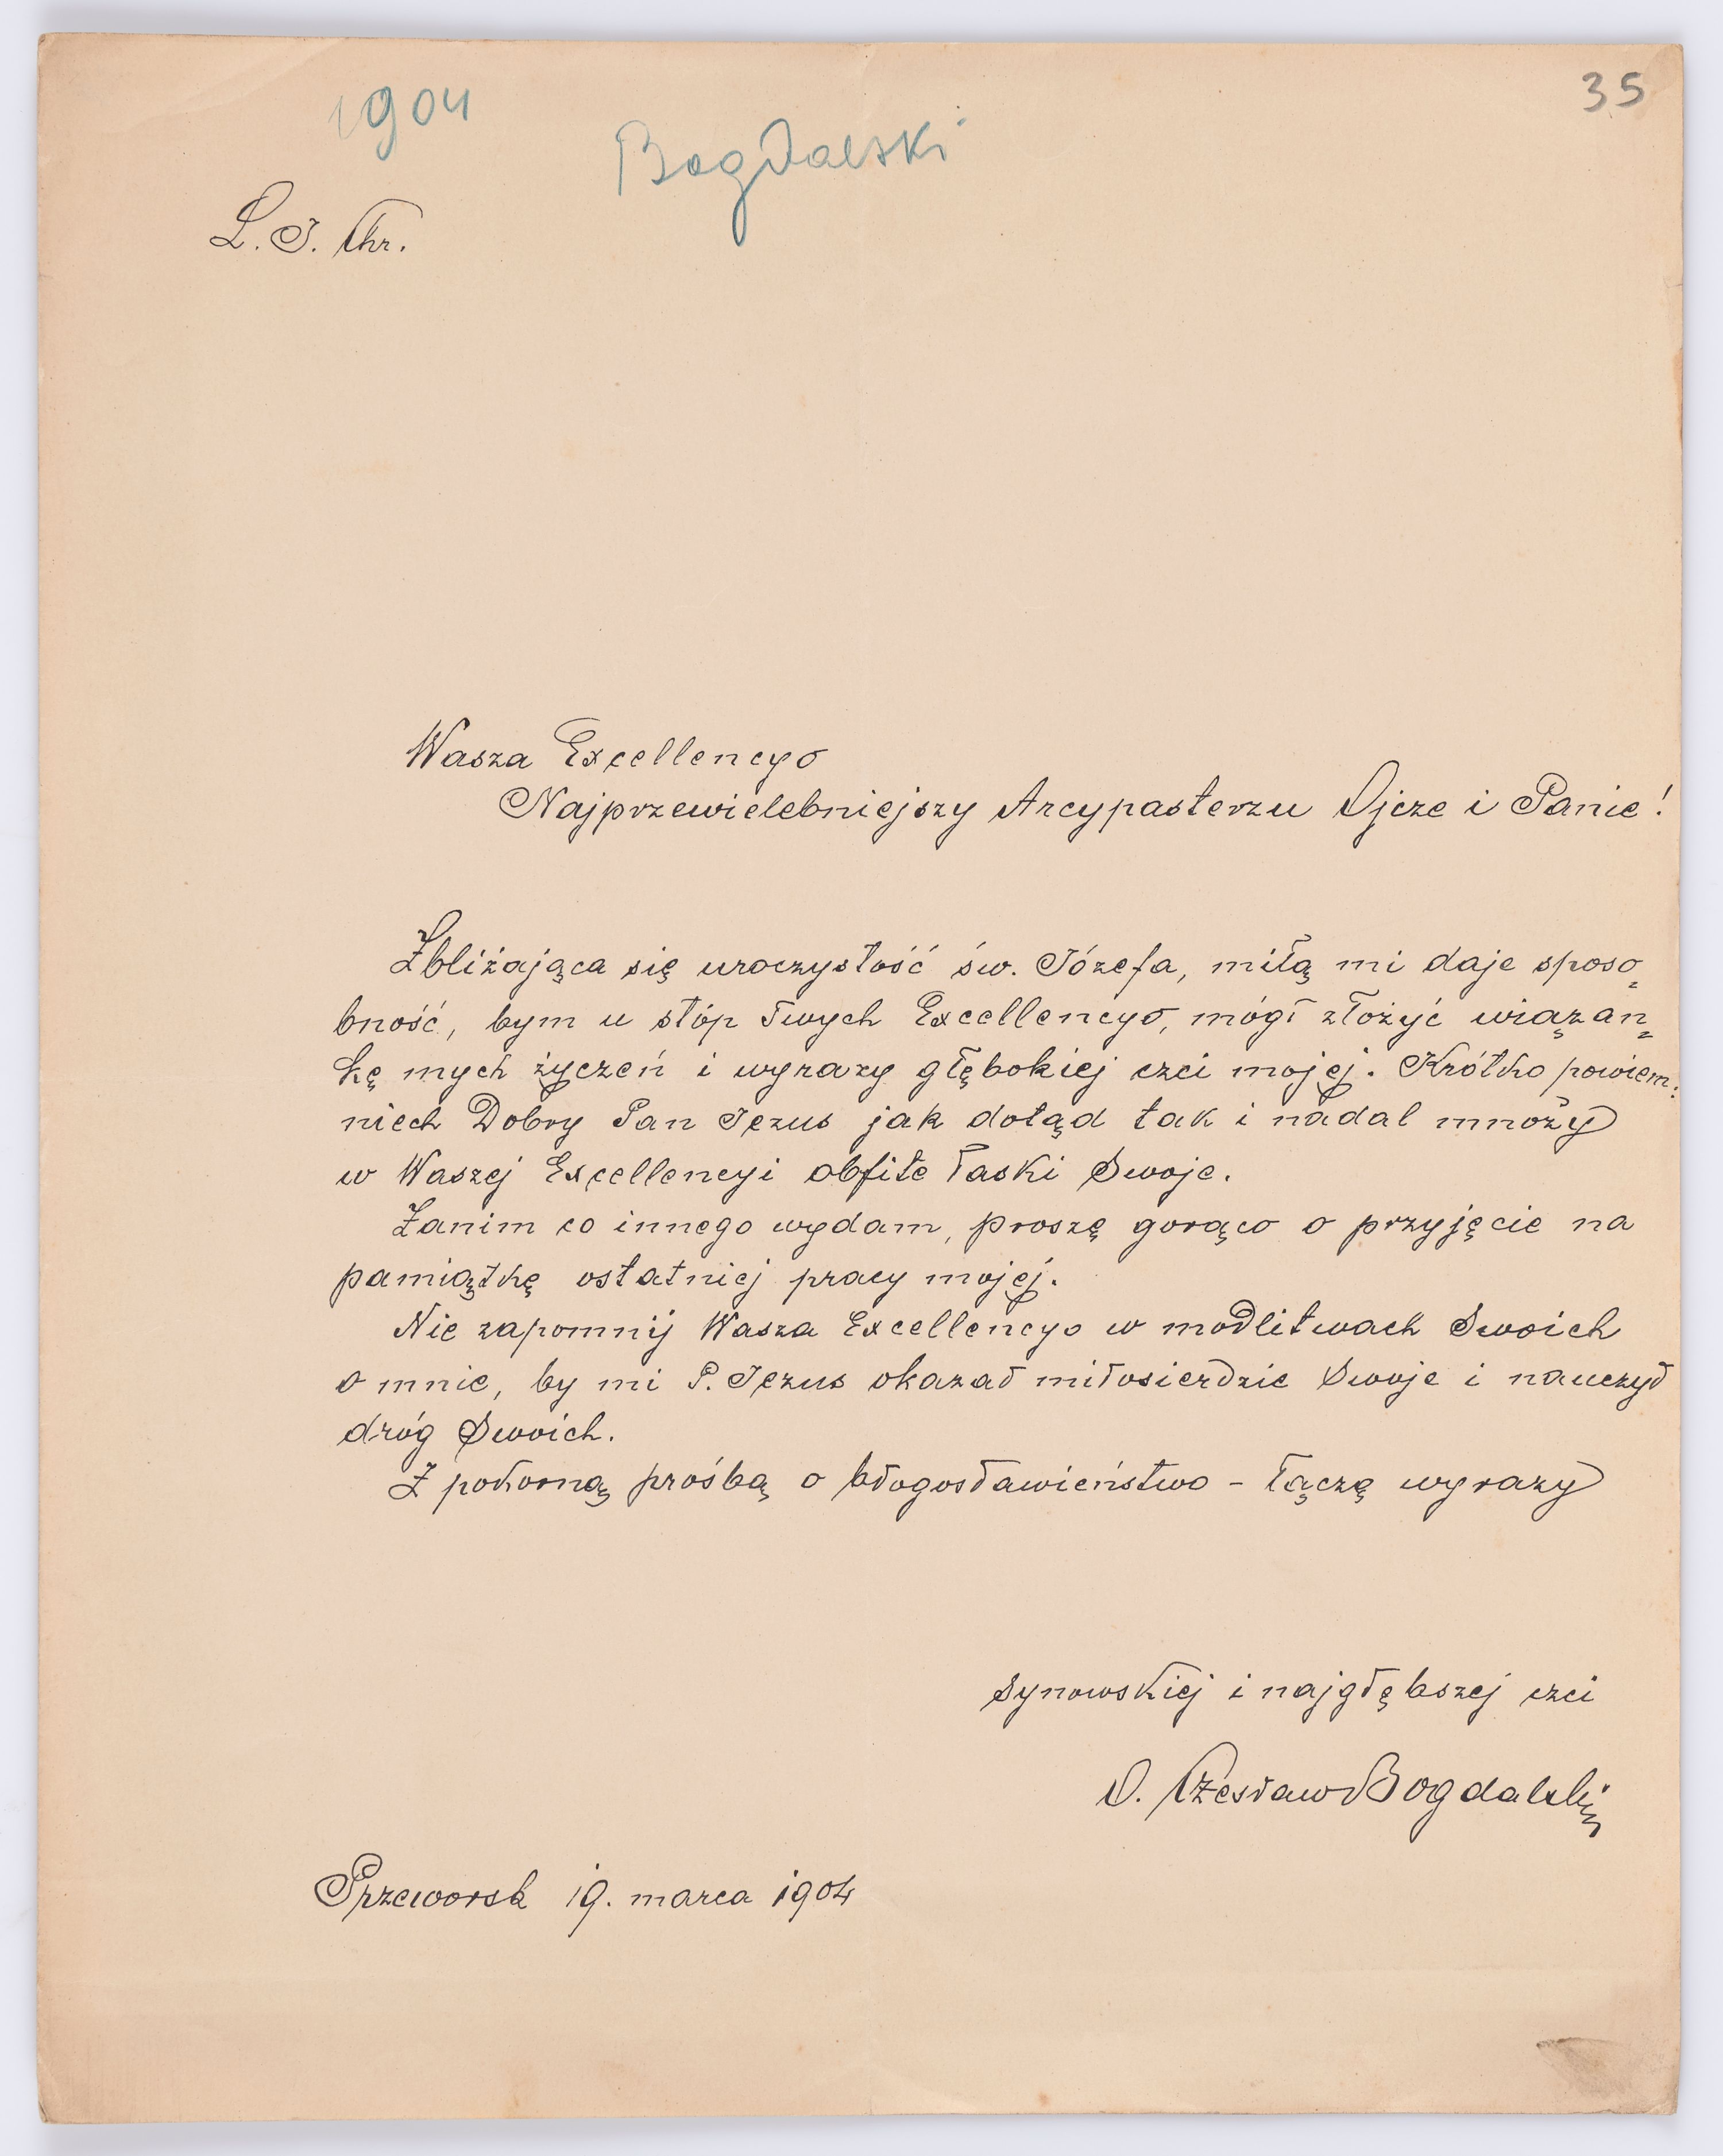 35
1904
Bogdalski
L. J. Chr.
Wasza Excellencyo
Najprzewielebniejszy Arcypasterzu Ojcze i Panie!
Zbliżająca się uroczystość św. Józefa, miłą mi daje sposo=
bność, bym u stóp Twych Excellencyo, mógł złożyć wiązan=
kę mych życzeń i wyrazy głębokiej czci mojej. Krótko powiem:
niech Dobry Pan Jezus jak dotąd tak i nadal mnoży
w Waszej Excellencyi obfite łaski Swoje.
Zanim co innego wydam, proszę gorąco o przyjęcie na
pamiątkę ostatniej pracy mojej.
Nie zapomnij Wasza Excellencyo w modlitwach Swoich
o mnie, by mi P. Jezus okazał miłosierdzie Swoje i nauczył
dróg Swoich.
Z pokorną prośbą o błogosławieństwo - łączę wyrazy
synowskiej i najgłębszej czci
O. Czesław Bogdalski
Przeworsk 19. marca 1904